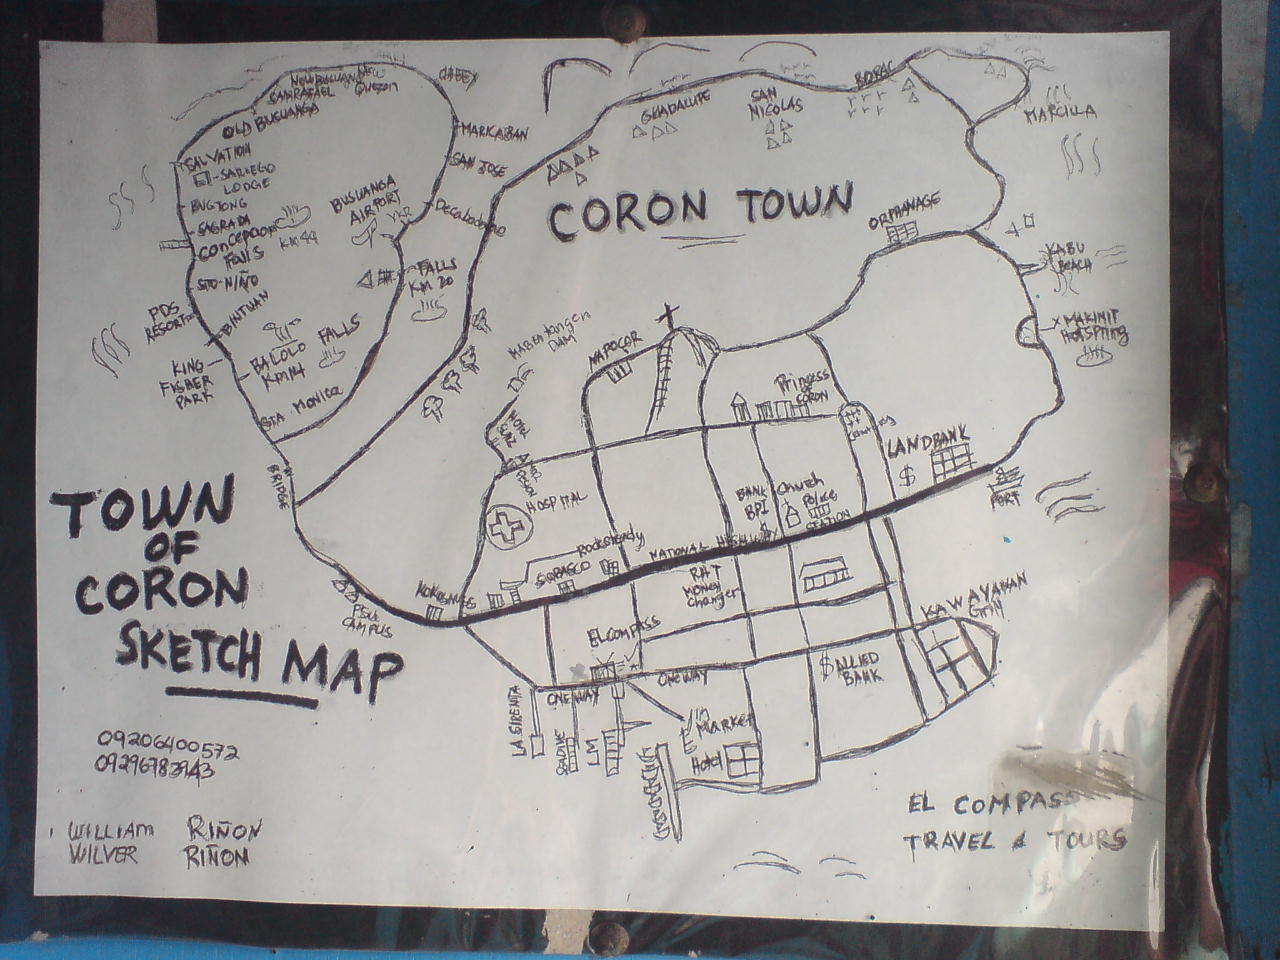 NEW BUSUANGA
NEW QUEZON
SAN RAFAEL
OLD BUSUANGA
CHEEY
MARKABAN
SAN JOSE
SALVATION
-SARIEGO
LODGE
BUGTONG
SAGRADA
CONCEPCION
Falls
KM 44
STO-NIÑO
BUSUANGA
AIRPORT
YKR
Decabobobo
FALLS
KM 20
PDS
RESORT
BINTUAN
KING
FISHER
PARK
BALOLO
KM 14
FALLS
STA. MONICA
BRIDGE
GUADALUTE
SAN
NICOLAS
BORAC
MARCILLA
CORON TOWN
ORPHANAGE
KABU
BEACH
MAKINIT
HOTSPTING
MABENTANGEN
DAM
NAPOCOR
Princess
OF
CORON
LANDBANK
$
PORT
HOSPITAL
BANK
BPI
Church
Police
STATION
NATIONAL HIGHWAY
Rocksteady
SIRBASCO
KOKOSNUSS
PSU
CAMPUS
R&T
MONEY
Changer
EL COMPASS
KAWAYANAN
Grill
$ ALLIED
BANK
ONE WAY
ONE WAY
LA SIRENITA
LM
MARKET
Hotel
TOWN
OF
CORON
SKETCH MAP
09206400572
09296783943
WILLIAM RIÑON
WILVER RIÑON
EL COMPASS
TRAVEL & TOURS